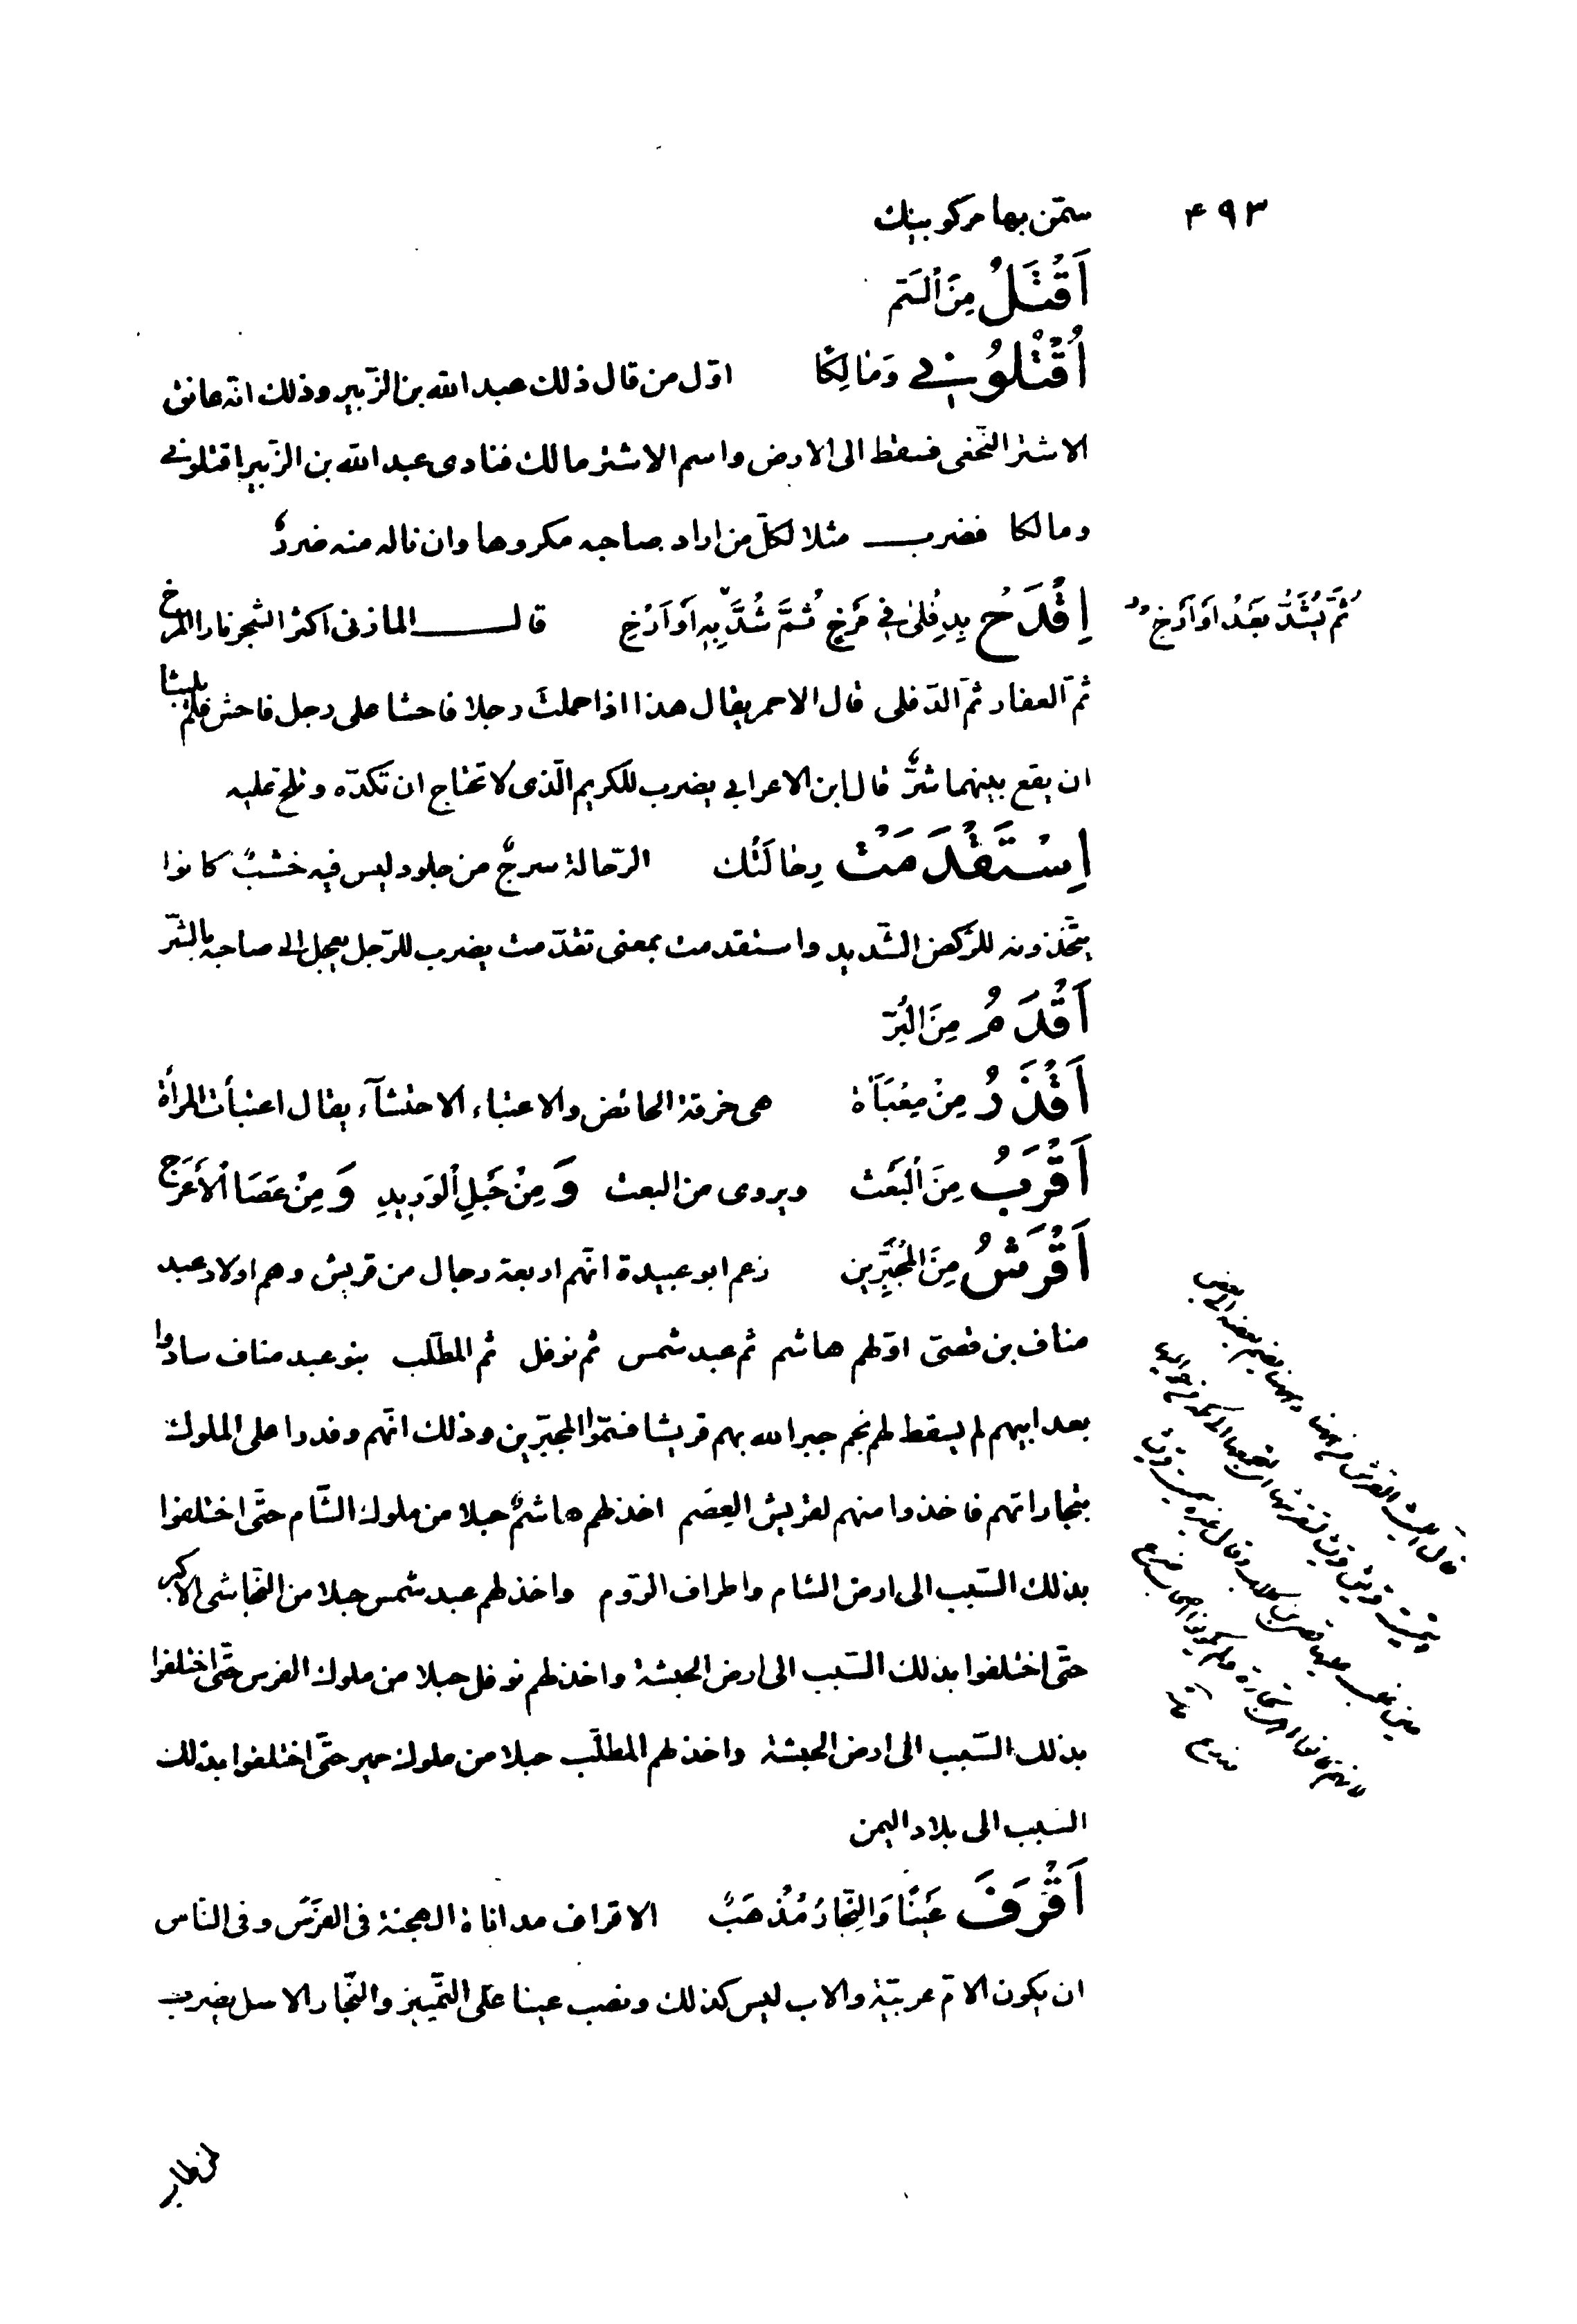 ٤٩٣
ستمن بها مركوبيك
اَقْتَلُ مِنَ السَّم
اُقْتُلُونِي وَمَالِكًا اوّل من قال ذلك عبد الله بن الزّبير وذلك انّه عانق
الاشتر النّخعى فسقط الى الارض واسم الاشتر مالك فنادى عبد الله بن الزّبير اقتلونى
ومالكا فضرب مثلا لكلّ من اراد بصاحبه مكروها وان ناله منه ضررٌ
اِقْدَحْ بِدِفْلٰى فِي مَرْخٍ ثُمَّ شُدَّ بِهِ اَوْ اَرْخِ قال المازنى اكثر الشّجر نارا المرخ
ثُمَّ يُشَدُّ بَعْدُ اَوْ اَرْخِ
ثمّ العفار ثمّ الدّفلى قال الاحمر يقال هذا اذا حملت رجلا فاحشا على رجل فاحش فلم يلبثا
ان يقع بينهما شرٌّ قال ابن الاعرابى يضرب للكريم الّذى لا تحتاج ان تكدّه وتلحّ عليه
اِسْتَقْدَمَتْ رِحَالَتُك الرّحالة سرجٌ من جلود ليس فيه خشبٌ كانوا
يتّخذونه للرّكض الشّديد واستقدمت بمعنى تقدّمت يضرب للرّجل يعجل الى صاحبه بالشّر
اَقْدَمُ مِنَ الْبُرّ
اَقْذَرُ مِنْ مِعْبَأَة هى خرقة الحائض والاعتباء الاحتشآء يقال اعتبأت المرأة
اَقْرَبُ مِنَ الْبَعَث ويروى من البعث وَمِنْ حَبْلِ الْوَرِيدِ وَمِنْ عَصَا الْاَعْرَج
اَقْرَشُ مِنَ الْمُجَبِّرِين زعم ابو عبيدة انّهم اربعة رجال من قريش وهم اولاد عبد
مناف بن قصىّ اوّلهم هاشم ثم عبد شمس ثم نوفل ثم المطّلب بنو عبد مناف سادوا
بعد ابيهم لم يسقط لهم نجم جبر الله بهم قريشا فسمّوا المجبّرين وذلك انّهم وفدوا على الملوك
بتجاراتهم فاخذوا منهم لقريش العِصَم اخذ لهم هاشمٌ حبلا من ملوك الشّام حتّى اختلفوا
بذلك السّبب الى ارض الشام واطراف الرّوم واخذ لهم عبد شمس حبلا من النّجاشى الاكبر
حتّى اختلفوا بذلك السّبب الى ارض الحبشة واخذ لهم نوفل حبلا من ملوك الفرس حتّى اختلفوا
بذلك السّبب الى ارض الحبشة واخذ لهم المطلّب حبلا من ملوك حمير حتّى اختلفوا بذلك
السّبب الى بلاد اليمن
اَقْرَفَ عَيْنًا وَالنِّجَارُ مُذْهَبٌ الاقراف مداناة الهجنة فى الفَرَس وفى النّاس
ان يكون الامّ عربيّة والاب ليس كذلك ونصب عينا على التّمييز والنّجار الاصل يضرب